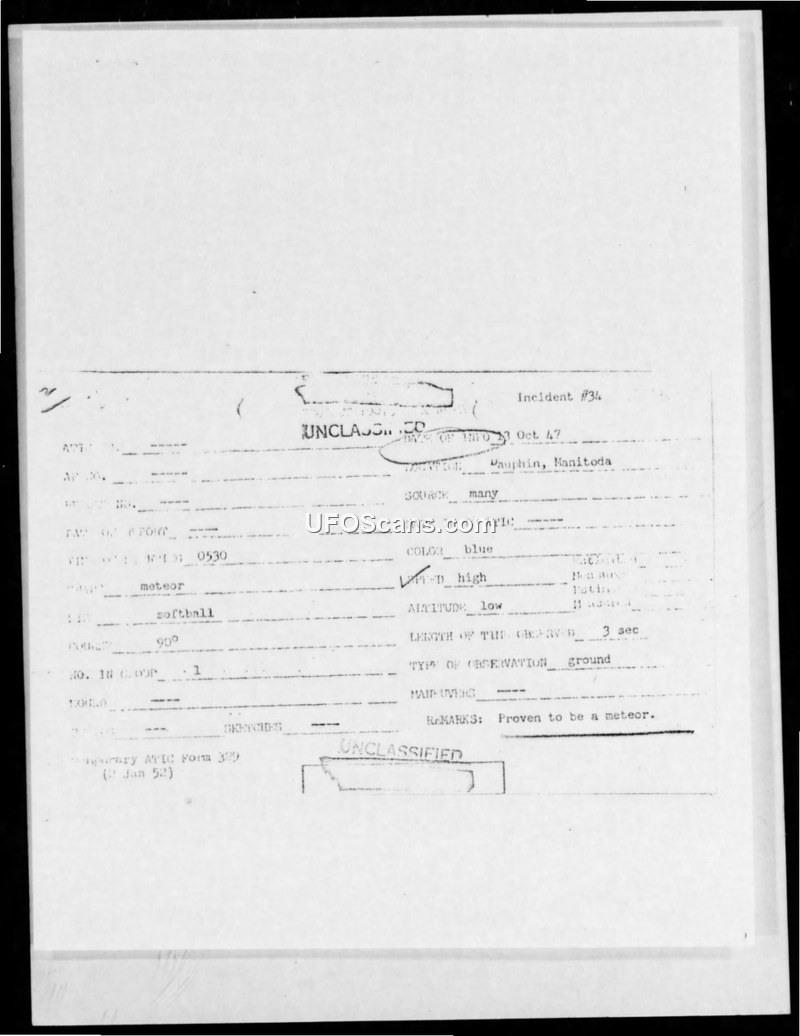 Incident #34
UNCLASSIFIED
DATE OF INFO 13 Oct 47
-----
AF NO. -----
LOCATION Dauphin, Manitoda
NO. ----
SOURCE many
----
ATIC -----
UFOScans.com
0530
COLOR blue
meteor
SPEED high
softball
ALTITUDE low
COURSE 90°
LENGTH OF TIME OBSERVED 3 sec
NO. IN GROUP 1
TYPE OF OBSERVATION ground
SOUND ----
MANEUVERS ----
--- SKETCHES ----
REMARKS: Proven to be a meteor.
Temporary ATIC Form 329
(2 Jan 52)
UNCLASSIFIED